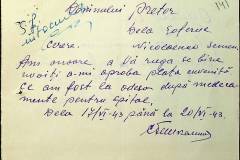 Domnului Pretor
141
Dela Eoferne
Cerere. Nicolaenco Semen
Am onoare a Vă ruga se bine
voiți a-mi aproba plata cuvenită
ce am fost la odesa după medica
mente pentru spital,
Dela 17/VI-43 până la 20/VI-43.